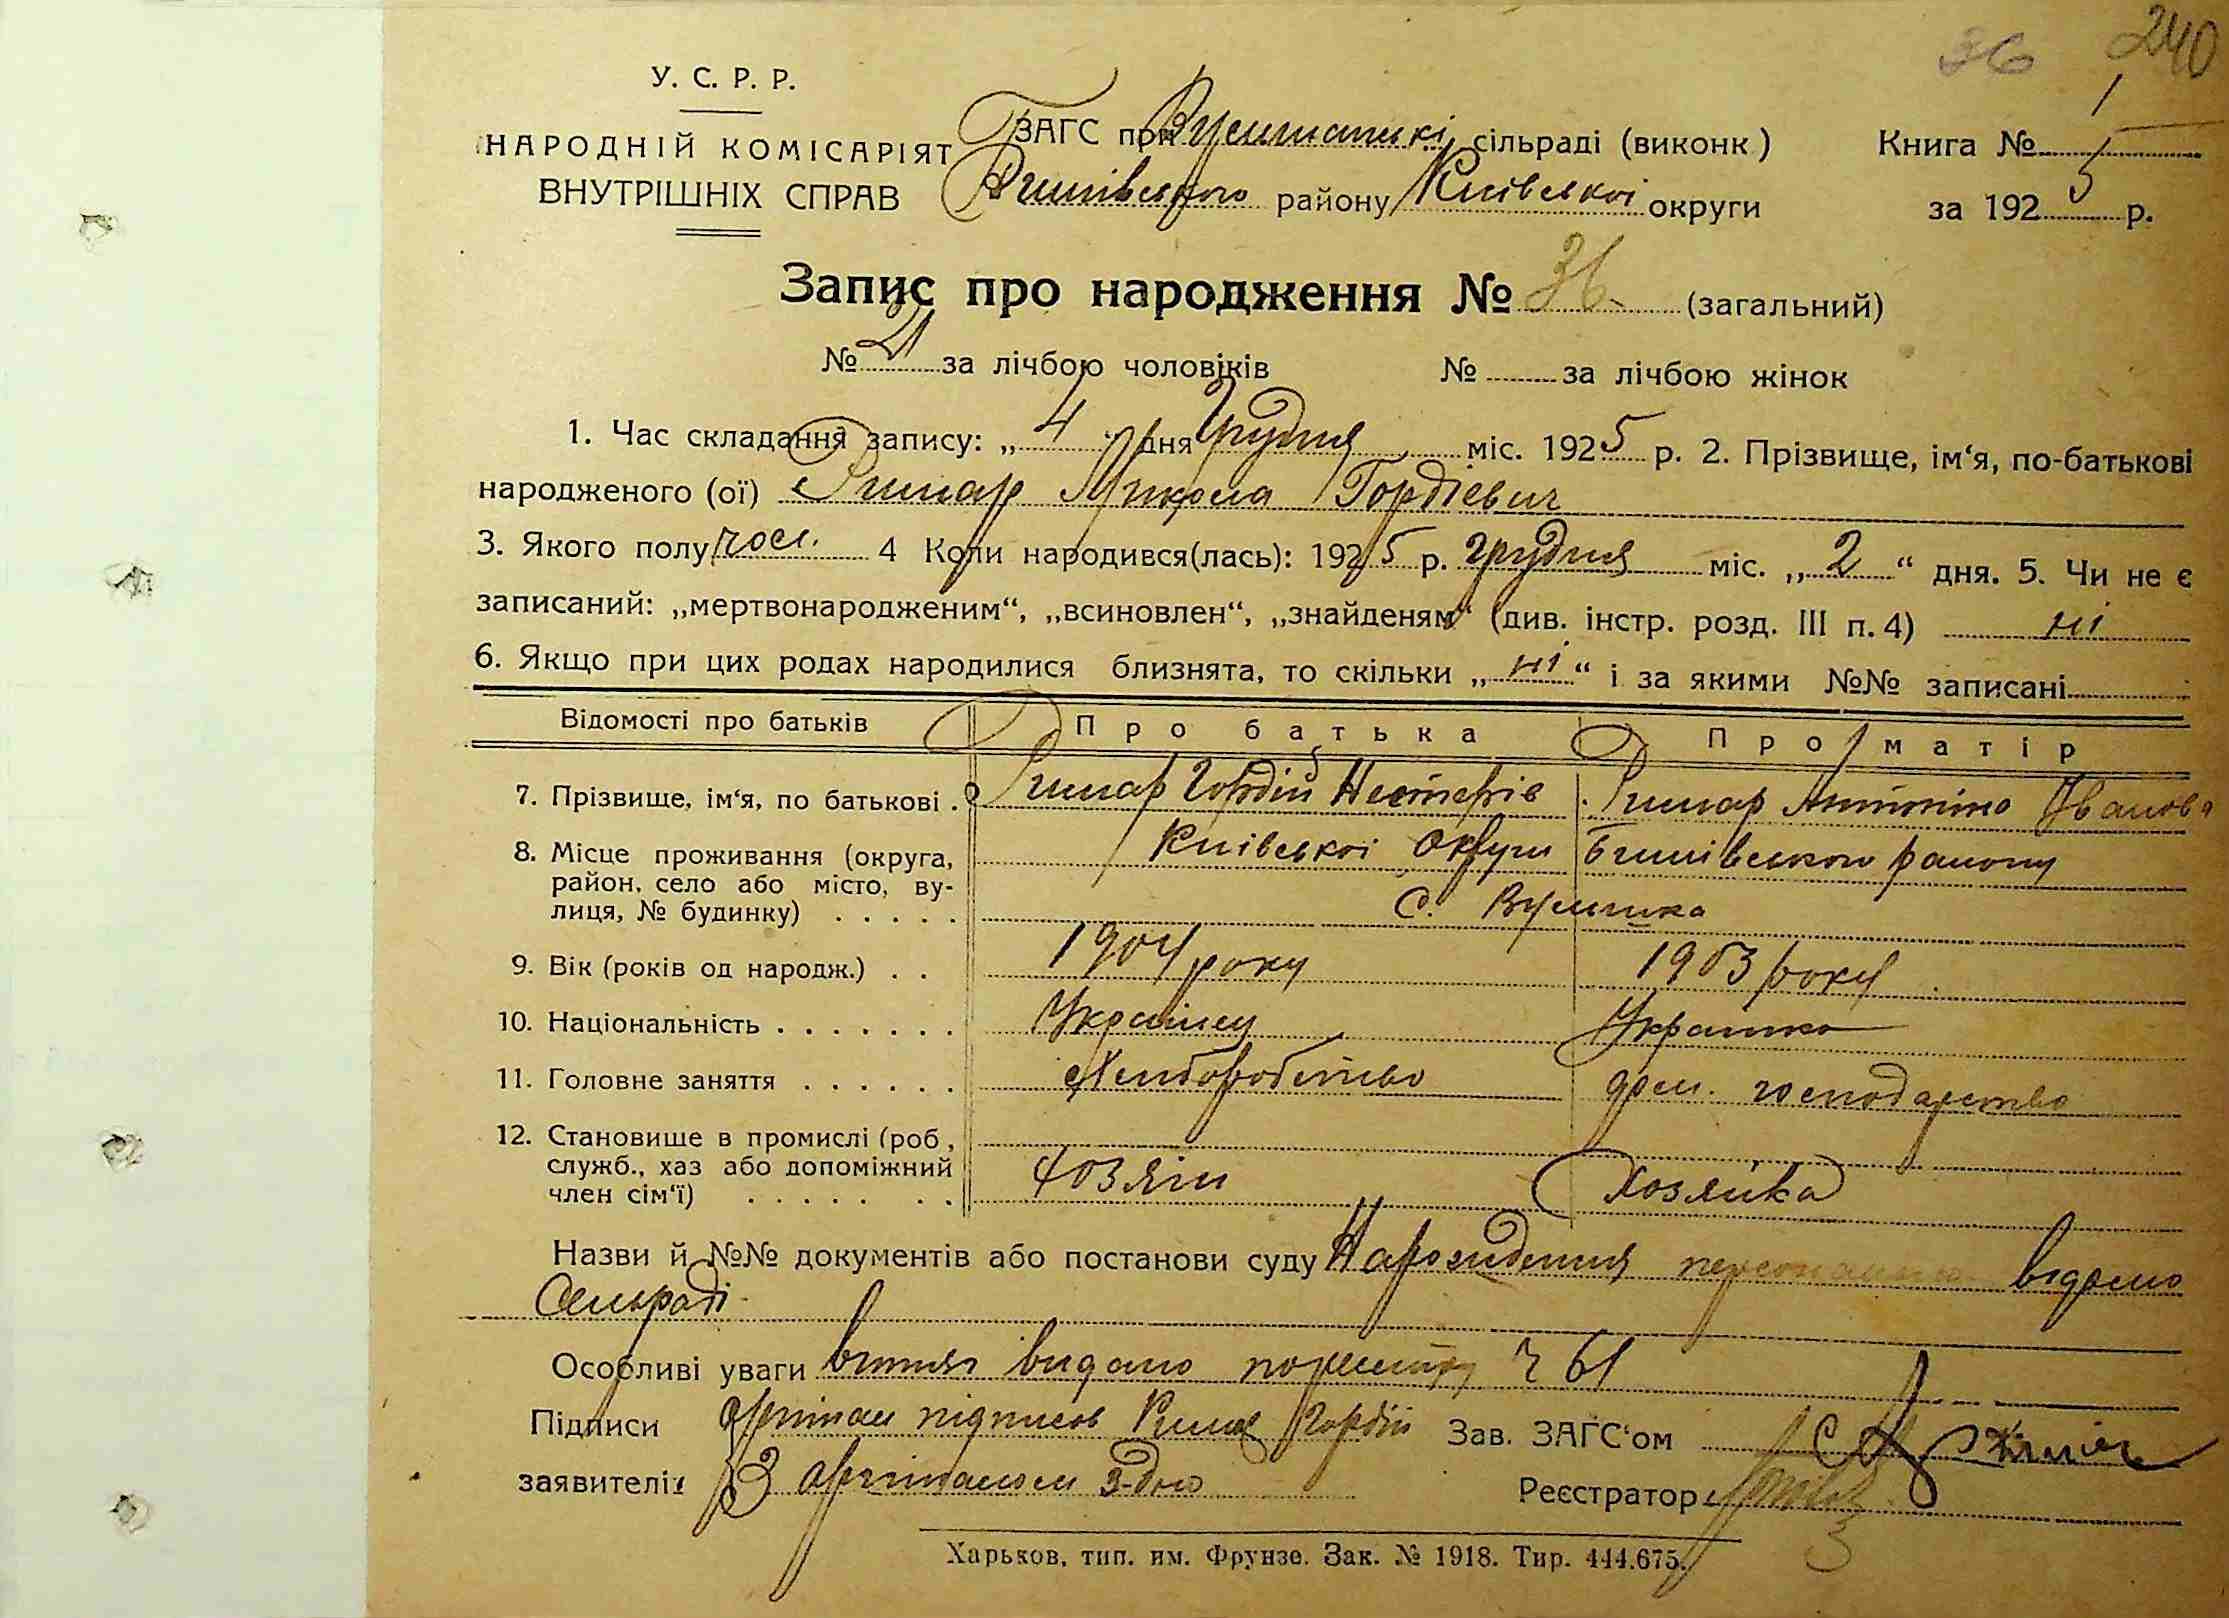 36 240
У. С. Р. Р.
НАРОДНІЙ КОМІСАРІЯТ
ВНУТРІШНІХ СПРАВ
ЗАГС при сільраді (виконк.)
району Київської округи
Книга № 1
за 1925 р.
Запис про народження № 36 (загальний)
№ 21 за лічбою чоловіків № за лічбою жінок
1. Час складання запису: „4“ дня Грудня міс. 1925 р. 2. Прізвище, ім‘я, по-батькові
народженого (ої) Римар Микола Гордієвич
3. Якого полу чол. 4 Коли народився(лась): 1925 р. грудня міс. „2“ дня. 5. Чи не є
записаний: „мертвонародженим“, „всиновлен“, „знайденям“ (див. інстр. розд. III п. 4) ні
6. Якщо при цих родах народилися близнята, то скільки „ні“ і за якими №№ записані
Відомості про батьків Про батька Про матір
7. Прізвище, ім‘я, по батькові . Римар Гордій Нестерів Римар Іванов
8. Місце проживання (округа, Київської Округи Бишівського району
район, село або місто, ву-
лиця, № будинку) . . . . . С.
9. Вік (років од народж.) . . 1904 року 1903 року
10. Національність . . . . . . . Українец Украинка
11. Головне заняття . . . . . . Хлиборобство дом. господарство
12. Становище в промислі (роб.,
служб., хаз або допоміжний хозяин Хозяйка
член сім‘ї) . . . . . . .
Назви й №№ документів або постанови суду Нарождения персонально відомо
Сельраді
Особливі уваги витяг видано по реєстру ч 61
Підписи орігінал підписов Римар Гордій Зав. ЗАГС‘ом
заявителів З орігіналом з-дно Реєстратор
Харьков, тип. им. Фрунзе. Зак. № 1918. Тир. 444.675.